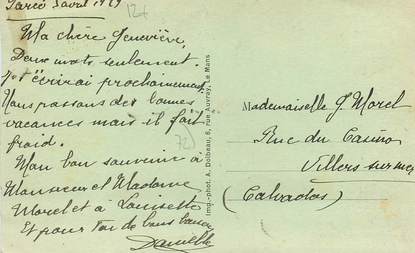 Parcé 3 avril 1929
124
Ma chère Geneviève,
Deux mots seulement
je t'écrirai prochainement
Nous passons des bonnes
vacances mais il fait
froid.
Mon bon souvenir à
Monsieur et Madame
Morel et à Louisette
Et pour toi de bons baisers
Danielle
72
Imp.-phot. A. Dolbeau, 6, rue Auvray, Le Mans
Mademoiselle G. Morel
Rue du Casino
Villers sur mer
(Calvados)